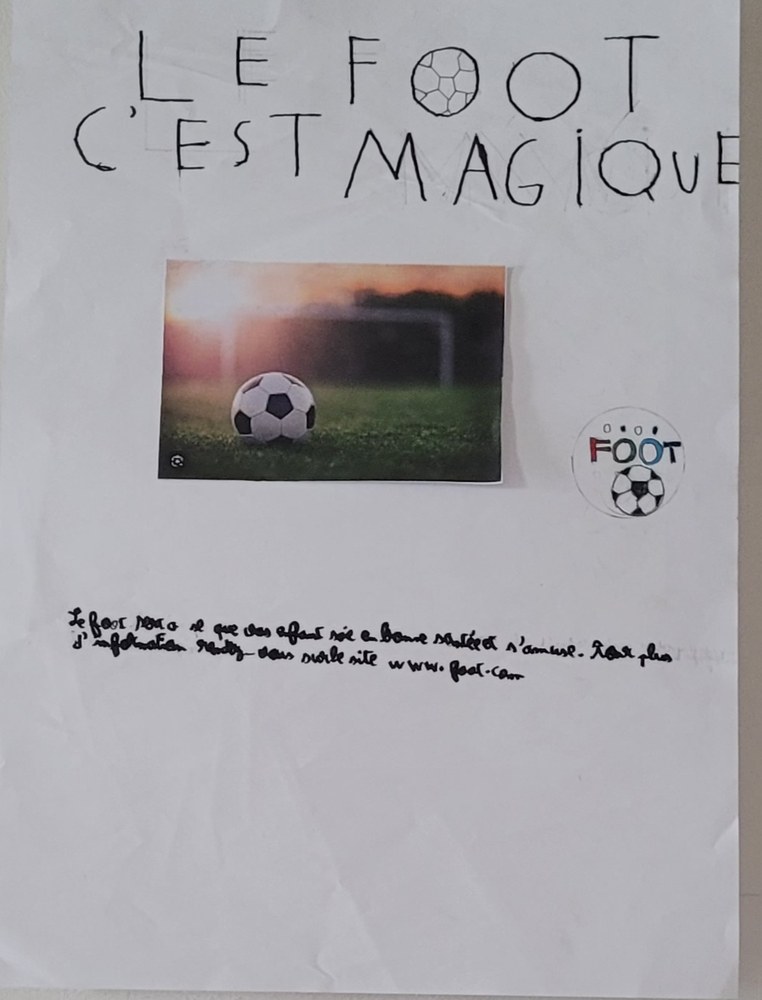 LE FOOT
C'EST MAGIQUE
FOOT
Le foot sert a se que vos efant soie en bonne santée et s'amuse. Pour plus
d'information rendez-vous sur le site www.foot.com